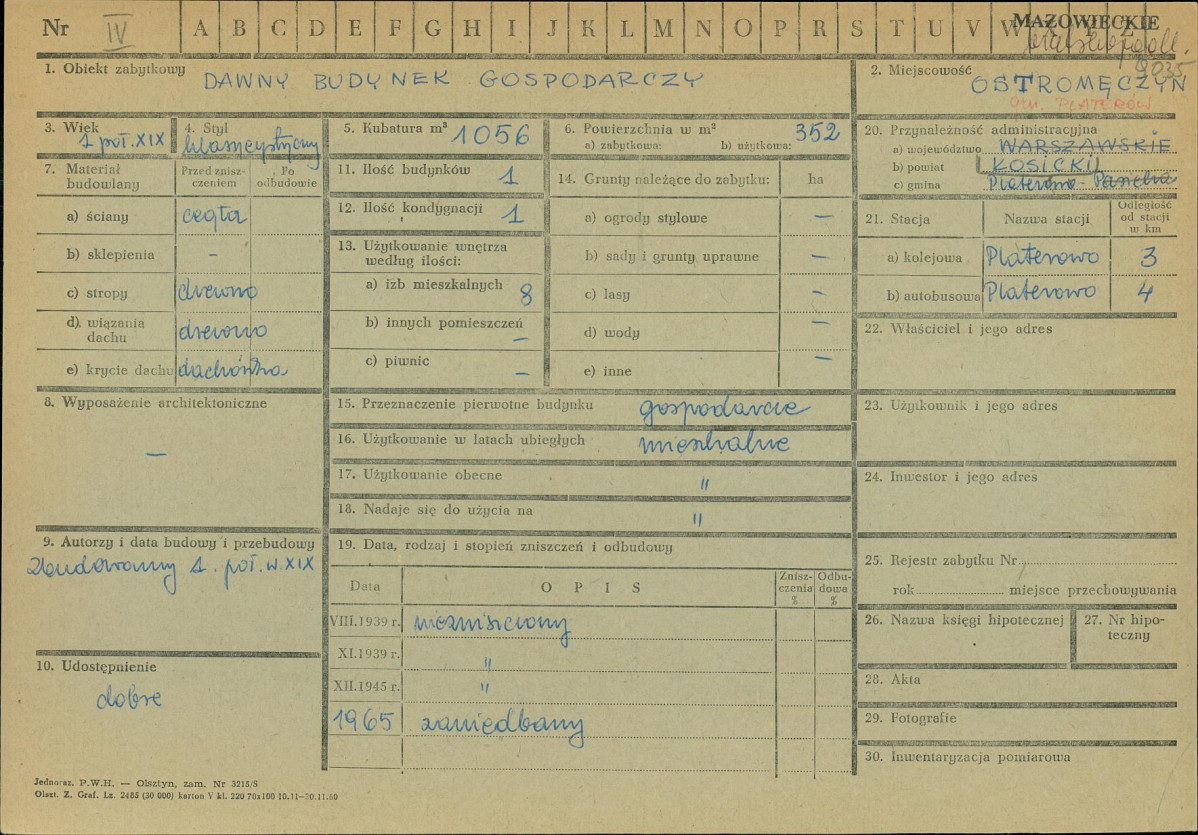 Nr IV A B C D E F G H I J K L M N O P R S T U V W Y Z
MAZOWIECKIE
9035
1. Obiekt zabytkowy DAWNY BUDYNEK GOSPODARCZY
2. Miejscowość OSTROMĘCZYN
gm. PLATERÓW
3. Wiek 1 poł. XIX
4. Styl klasycystyczny
5. Kubatura m³ 1056
6. Powierzchnia w m² 352
a) zabytkowa: b) użytkowa:
7. Materiał budowlany
Przed zniszczeniem
Po odbudowie
a) ściany cegła
b) sklepienia –
c) stropy drewno
d) wiązania dachu drewno
e) krycie dachu dachówka
8. Wyposażenie architektoniczne
–
9. Autorzy i data budowy i przebudowy
Zbudowany 1. poł. w. XIX
10. Udostępnienie
dobre
11. Ilość budynków 1
12. Ilość kondygnacji 1
13. Użytkowanie wnętrza
według ilości:
a) izb mieszkalnych 8
b) innych pomieszczeń –
c) piwnic –
14. Grunty należące do zabytku: ha
a) ogrody stylowe –
b) sady i grunty uprawne –
c) lasy –
d) wody –
e) inne –
15. Przeznaczenie pierwotne budynku gospodarcze
16. Użytkowanie w latach ubiegłych mieszkalne
17. Użytkowanie obecne "
18. Nadaje się do użycia na "
19. Data, rodzaj i stopień zniszczeń i odbudowy
Data OPIS Zniszczenia % Odbudowa %
VIII.1939 r. niezniszczony
XI.1939 r. "
XII.1945 r. "
1965 zaniedbany
20. Przynależność administracyjna
a) województwo WARSZAWSKIE
b) powiat ŁOSICKI
c) gmina Platerowo-
21. Stacja Nazwa stacji Odległość od stacji w km
a) kolejowa Platerowo 3
b) autobusowa Platerowo 4
22. Właściciel i jego adres
23. Użytkownik i jego adres
24. Inwestor i jego adres
25. Rejestr zabytku Nr
rok miejsce przechowywania
26. Nazwa księgi hipotecznej
27. Nr hipoteczny
28. Akta
29. Fotografie
30. Inwentaryzacja pomiarowa
Jednoraz. P.W.H. — Olsztyn, zam. Nr 3215/S
Olszt. Z. Graf. Lz. 2485 (30 000) karton V kl. 220 70x100 10.11—30.11.60